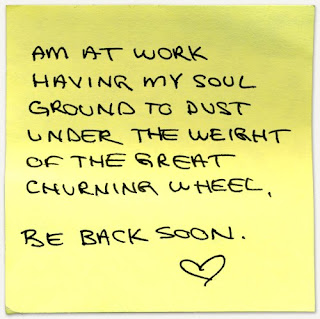 AM AT WORK
HAVING MY SOUL
GROUND TO DUST
UNDER THE WEIGHT
OF THE GREAT
CHURNING WHEEL.
BE BACK SOON.